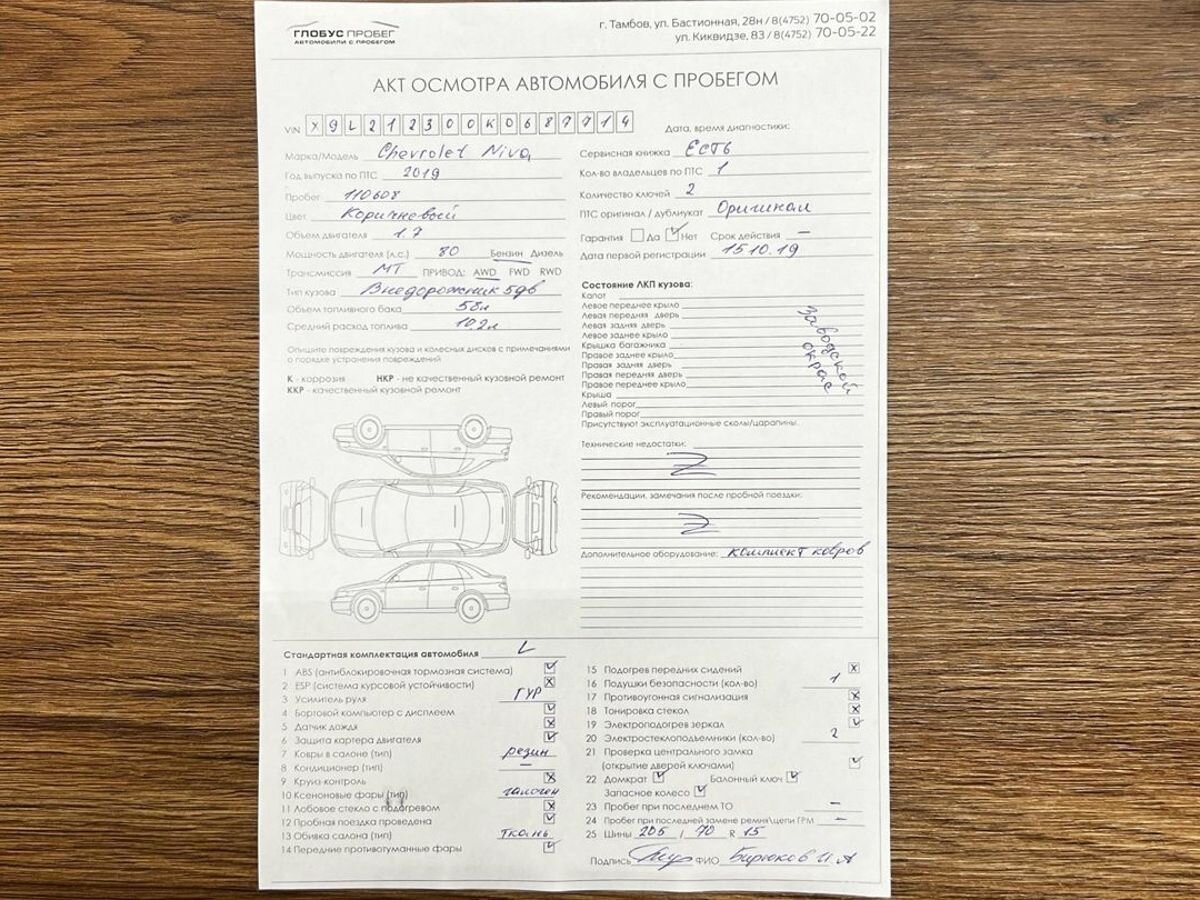 ГЛОБУС ПРОБЕГ
АВТОМОБИЛИ С ПРОБЕГОМ
г. Тамбов, ул. Бастионная, 28н / 8(4752) 70-05-02
ул. Киквидзе, 83 / 8(4752) 70-05-22
АКТ ОСМОТРА АВТОМОБИЛЯ С ПРОБЕГОМ
VIN X9L212300K0687714
Марка/Модель Chevrolet Niva
Год выпуска по ПТС 2019
Пробег 110608
Цвет Коричневый
Объем двигателя 1.7
Мощность двигателя (л.с.) 80 Бензин Дизель
Трансмиссия МТ ПРИВОД: AWD FWD RWD
Тип кузова Внедорожник 5дв
Объем топливного бака 58л
Средний расход топлива 10.2л
Опишите повреждения кузова и колесных дисков с примечаниями
о порядке устранения повреждений
К - коррозия НКР - не качественный кузовной ремонт
ККР - качественный кузовной ремонт
Дата, время диагностики:
Сервисная книжка Есть
Кол-во владельцев по ПТС 1
Количество ключей 2
ПТС оригинал / дубликат Оригинал
Гарантия Да Нет Срок действия —
Дата первой регистрации 15.10.19
Состояние ЛКП кузова:
Капот
Левое переднее крыло
Левая передняя дверь
Левая задняя дверь
Левое заднее крыло
Крышка багажника
Правое заднее крыло
Правая задняя дверь
Правая передняя дверь
Правое переднее крыло
Крыша
Левый порог
Правый порог
Заводской
окрас
Присутствуют эксплуатационные сколы/царапины.
Технические недостатки:
Z
Рекомендации, замечания после пробной поездки:
Z
Дополнительное оборудование: комплект ковров
Стандартная комплектация автомобиля L
1 ABS (антиблокировочная тормозная система)
2 ESP (система курсовой устойчивости)
3 Усилитель руля ГУР
4 Бортовой компьютер с дисплеем
5 Датчик дождя
6 Защита картера двигателя
7 Ковры в салоне (тип) резин
8 Кондиционер (тип) —
9 Круиз-контроль
10 Ксеноновые фары (тип) галоген
11 Лобовое стекло с подогревом
12 Пробная поездка проведена
13 Обивка салона (тип) ткань
14 Передние противотуманные фары
15 Подогрев передних сидений
16 Подушки безопасности (кол-во) 1
17 Противоугонная сигнализация
18 Тонировка стекол
19 Электроподогрев зеркал
20 Электростеклоподъемники (кол-во) 2
21 Проверка центрального замка
(открытие дверей ключами)
22 Домкрат Балонный ключ
Запасное колесо
23 Пробег при последнем ТО —
24 Пробег при последней замене ремня\цепи ГРМ —
25 Шины 205 / 70 R 15
Подпись ФИО Бирюков И А